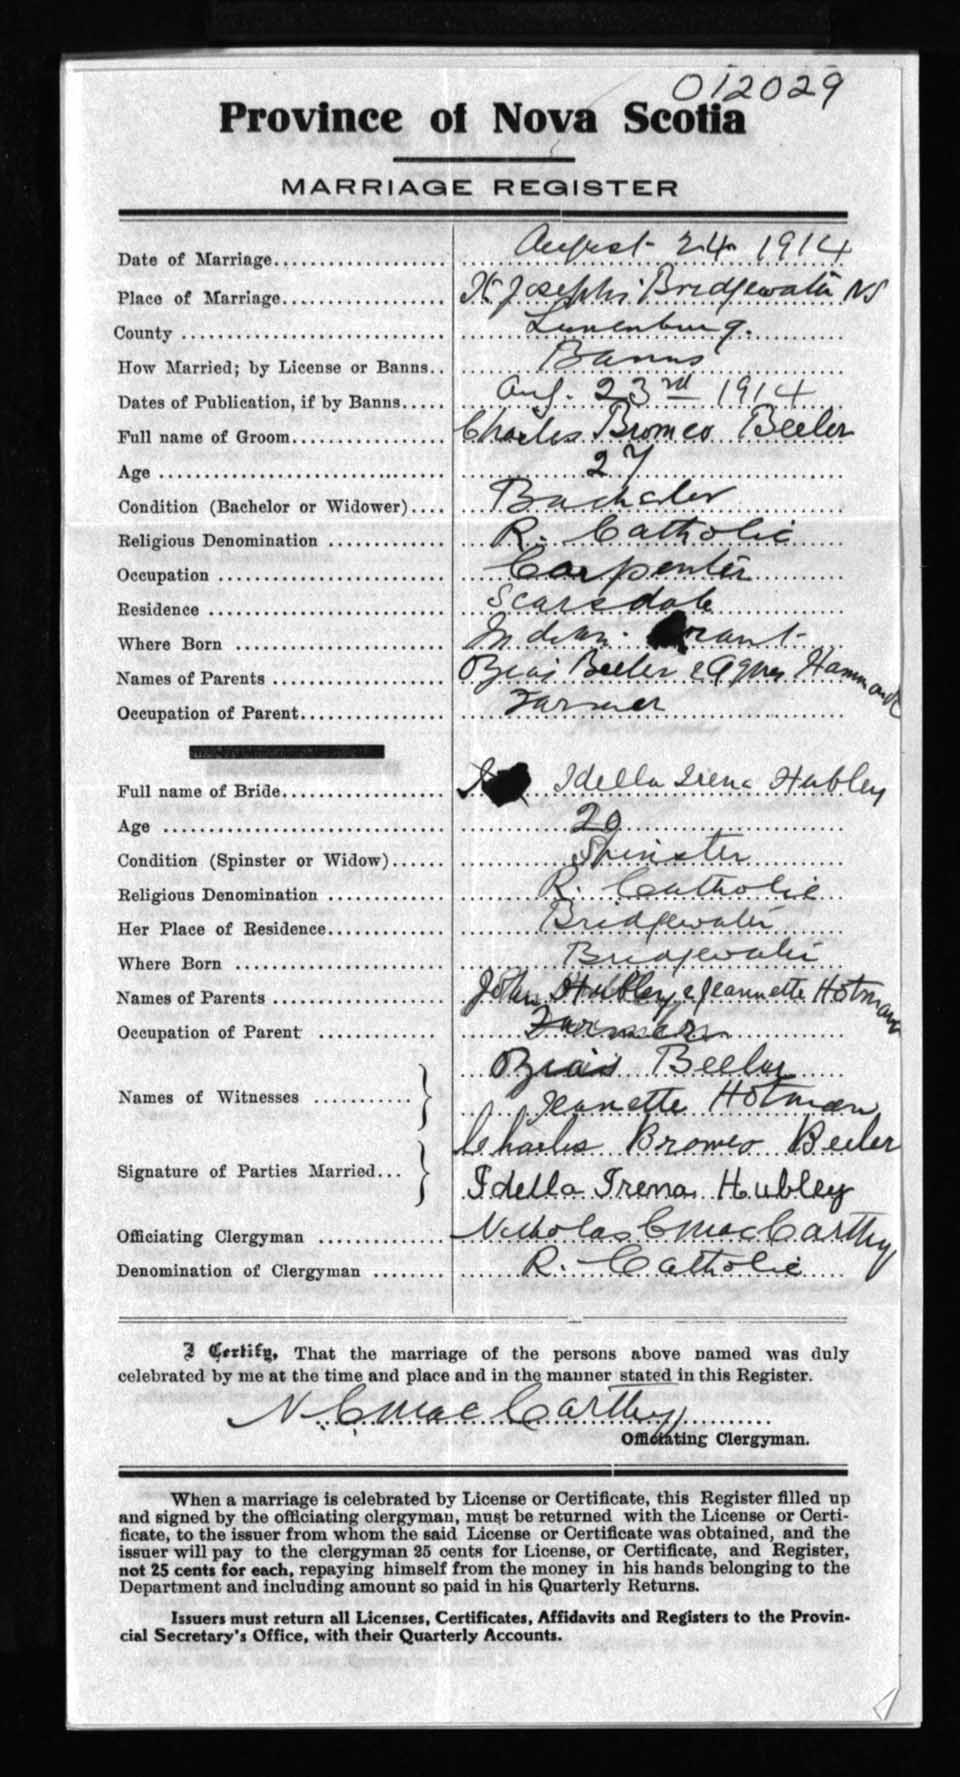 012029
Province of Nova Scotia
MARRIAGE REGISTER
Date of Marriage.................... August 24 1914
Place of Marriage................... St Josephs Bridgewater NS
County ............................. Lunenburg.
How Married; by License or Banns.. Banns
Dates of Publication, if by Banns..... Aug. 23rd 1914
Full name of Groom.................. Charles Bromeo Beeler
Age ................................ 27
Condition (Bachelor or Widower).... Bachelor
Religious Denomination ............. R. Catholic
Occupation ......................... Carpenter
Residence .......................... Scarsdale
Where Born ......................... Indian
Names of Parents ................... Ozias Beeler & Agnes Hammond
Occupation of Parent................ Farmer
Full name of Bride.................. Idella Irena Hubley
Age ................................ 20
Condition (Spinster or Widow)...... Spinster
Religious Denomination ............. R. Catholic
Her Place of Residence.............. Bridgewater
Where Born ......................... Bridgewater
Names of Parents ................... John Hubley & Jeannette Hotman
Occupation of Parent ............... Farmer
Names of Witnesses ........... } Ozias Beeler
Jeanette Hotman
Signature of Parties Married... } Charles Bromeo Beeler
Idella Irena Hubley
Officiating Clergyman .............. Nicholas C MacCarthy
Denomination of Clergyman ........ R. Catholic
I Certify, That the marriage of the persons above named was duly
celebrated by me at the time and place and in the manner stated in this Register.
N. C. MacCarthy
Officiating Clergyman.
When a marriage is celebrated by License or Certificate, this Register filled up
and signed by the officiating clergyman, must be returned with the License or Certi-
ficate, to the issuer from whom the said License or Certificate was obtained, and the
issuer will pay to the clergyman 25 cents for License, or Certificate, and Register,
not 25 cents for each, repaying himself from the money in his hands belonging to the
Department and including amount so paid in his Quarterly Returns.
Issuers must return all Licenses, Certificates, Affidavits and Registers to the Provin-
cial Secretary's Office, with their Quarterly Accounts.